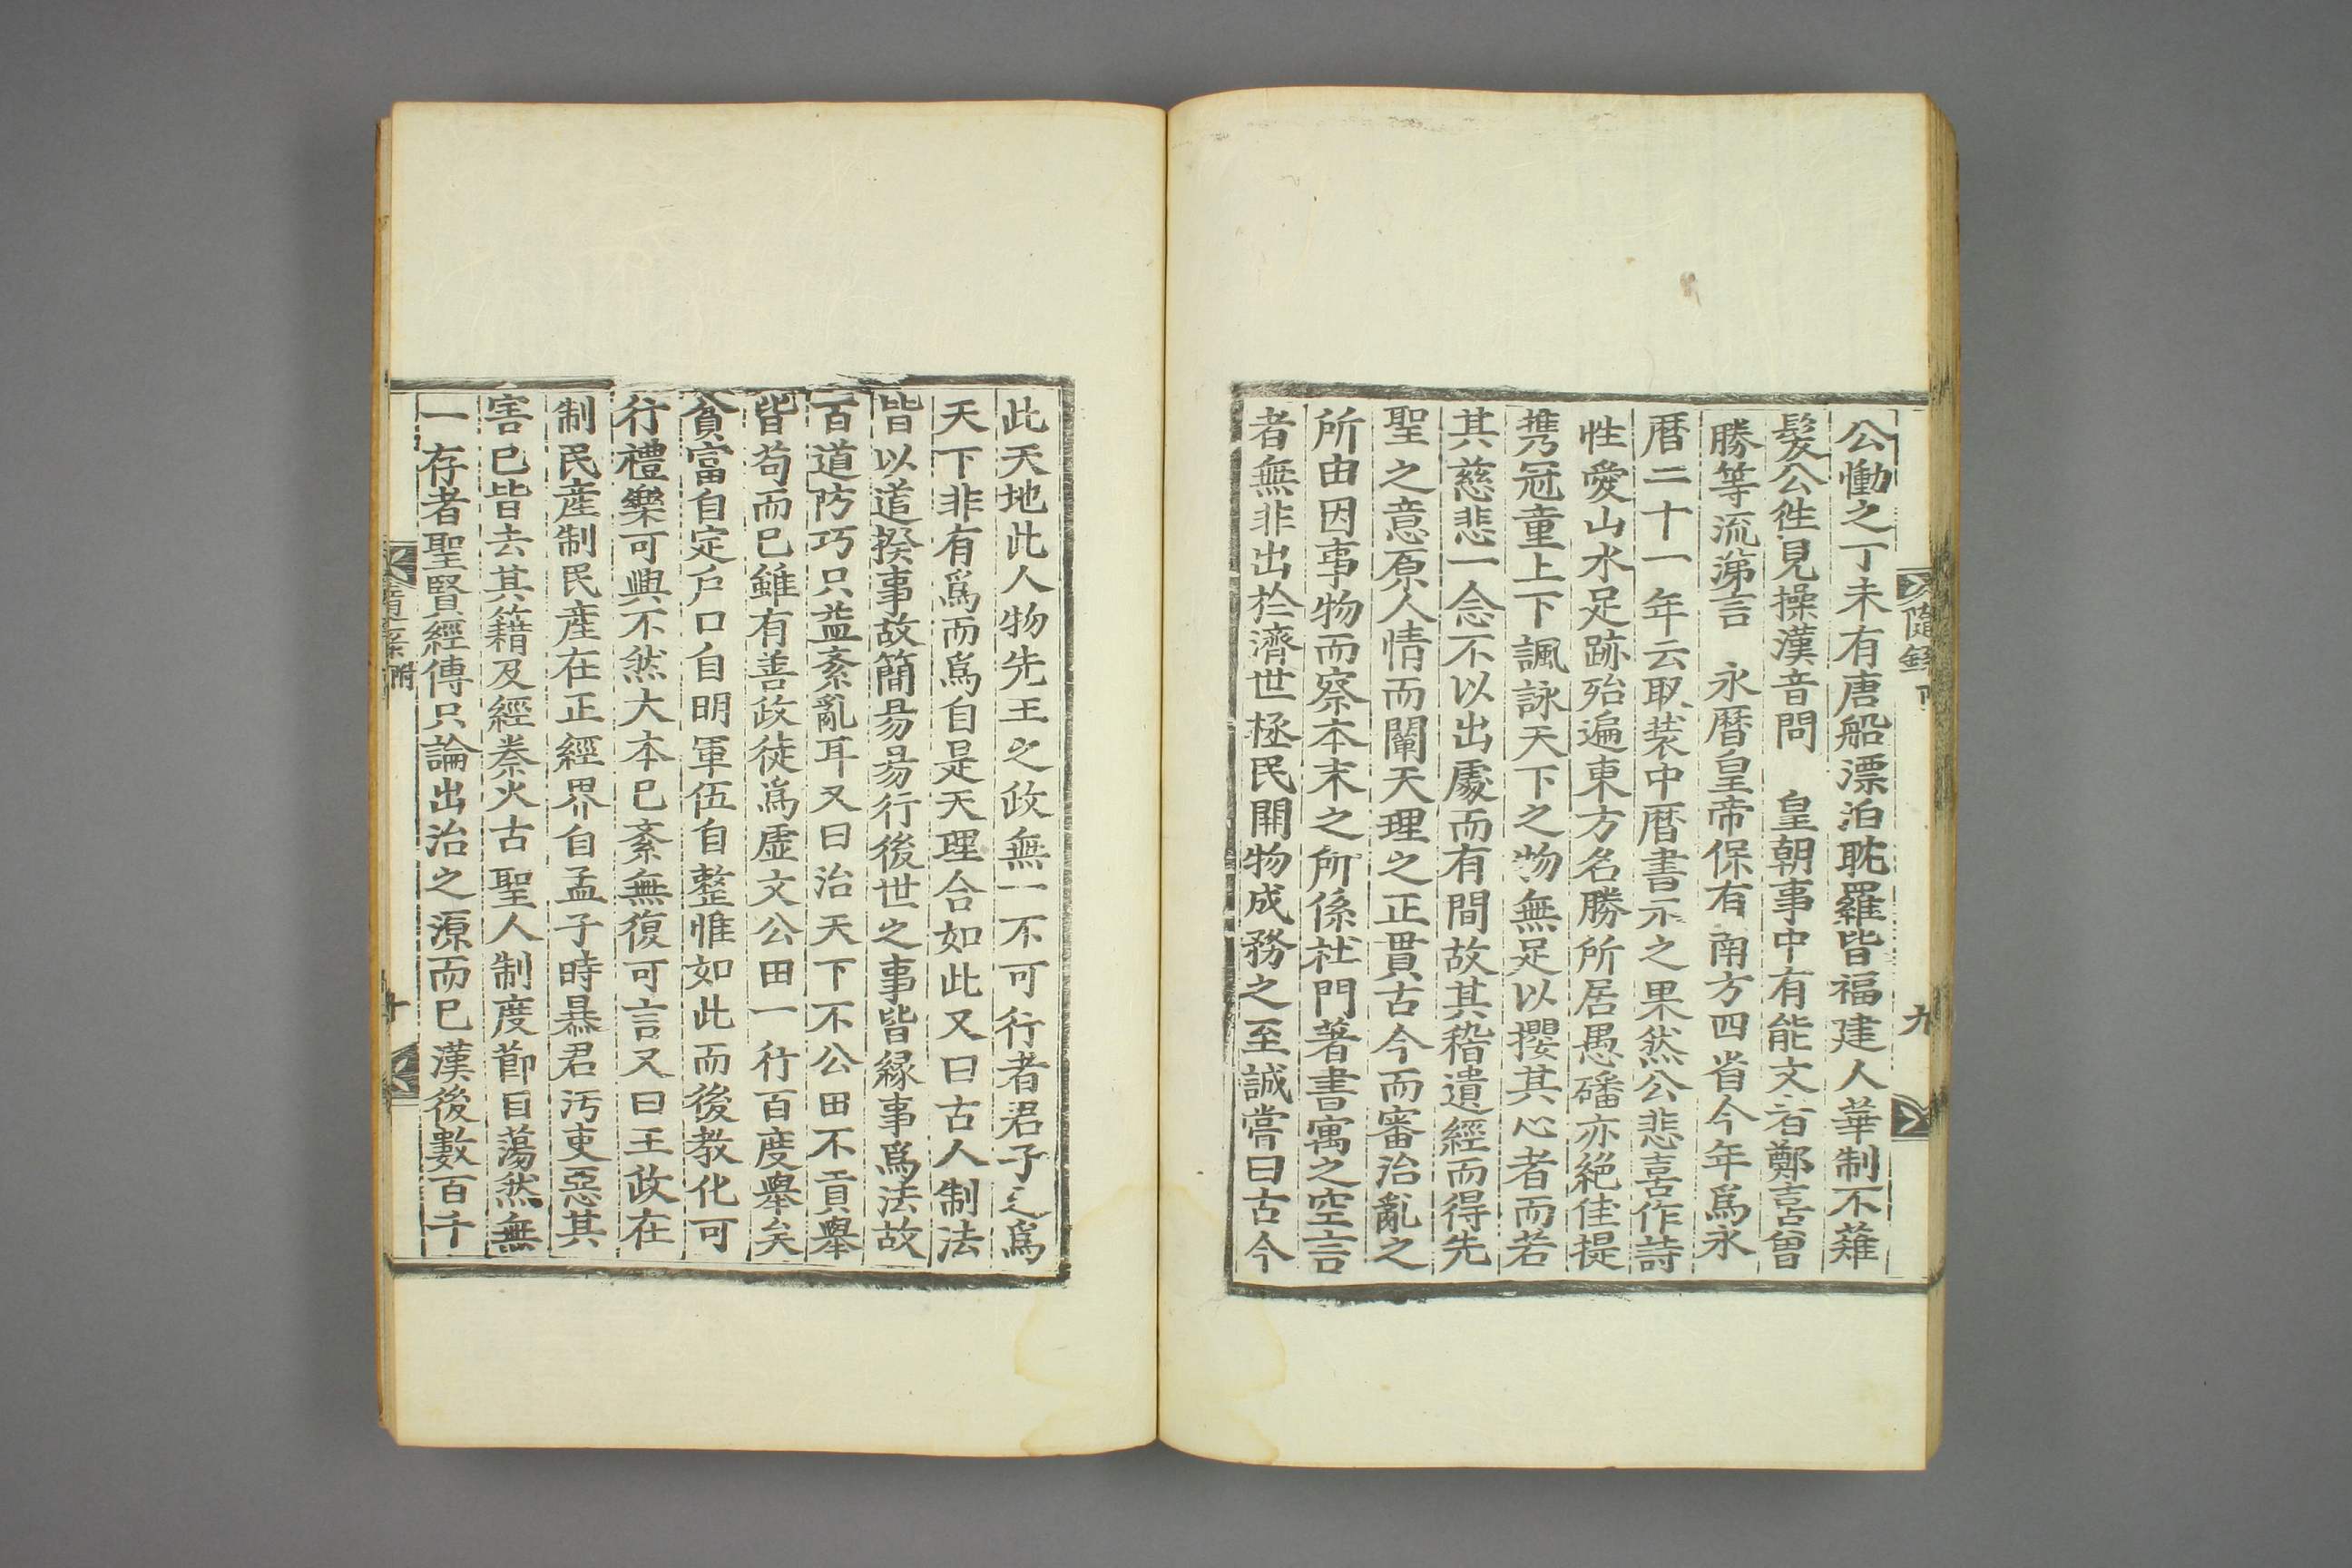 隨錄附
九
公慟之丁未有唐船漂泊耽羅皆福建人華制不薙
髮公徃見操漢音問　皇朝事中有能文者鄭喜曾
勝等流涕言　永曆皇帝保有南方四省今年爲永
曆二十一年云取装中曆書示之果然公悲喜作詩
性愛山水足跡殆遍東方名勝所居愚磻亦絕佳提
携冠童上下諷詠天下之物無足以攖其心者而若
其慈悲一念不以出處而有間故其稽遺經而得先
聖之意原人情而闡天理之正貫古今而審治亂之
所由因事物而察本末之所係杜門著書寓之空言
者無非出於濟世拯民開物成務之至誠嘗曰古今
此天地此人物先王之政無一不可行者君子之爲
天下非有爲而爲自是天理合如此又曰古人制法
皆以道揆事故簡昜昜行後世之事皆緣事爲法故
百道防巧只益紊亂耳又曰治天下不公田不貢舉
皆苟而已雖有善政徒爲虛文公田一行百度舉矣
貧富自定戶口自明軍伍自整惟如此而後敎化可
行禮樂可興不然大本已紊無復可言又曰王政在
制民産制民産在正經界自孟子時暴君汚吏惡其
害已皆去其籍及經秦火古聖人制度節目蕩然無
一存者聖賢經傳只論出治之源而已漢後數百千
附
十